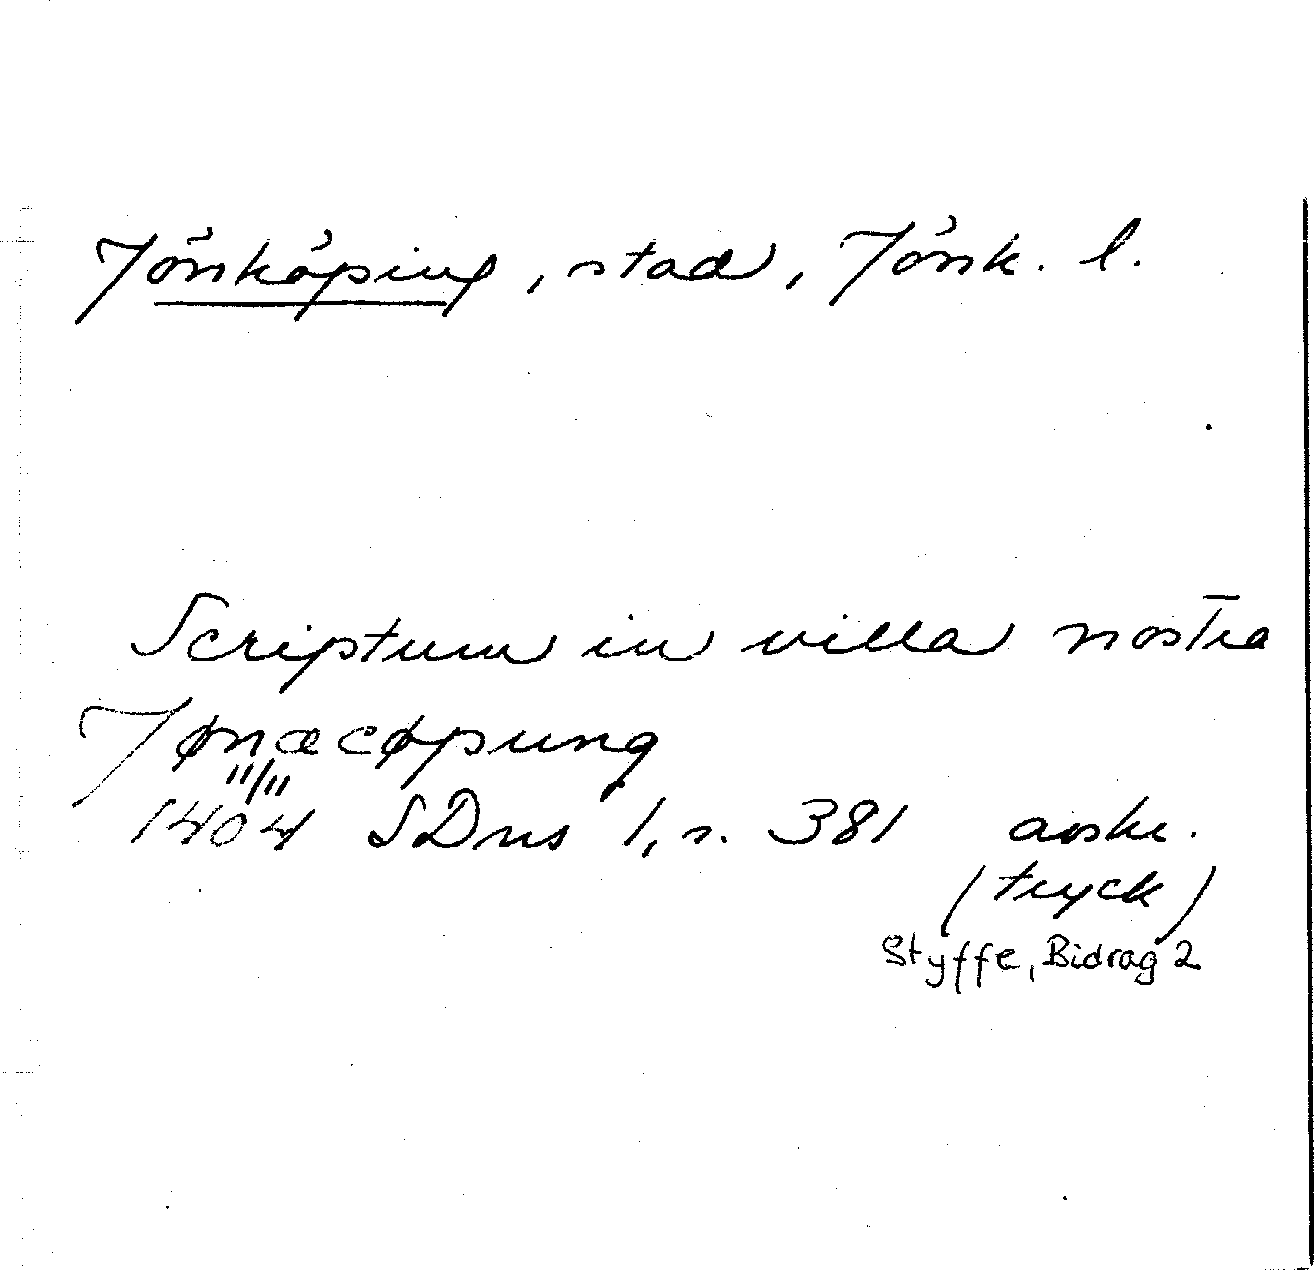 Jönköping, stad, Jönk. l.
Scriptum in villa nostra
Jønæcøpung
"/"
1404 SDns 1, s. 381 avskr.
(tryck)
Styffe, Bidrag 2